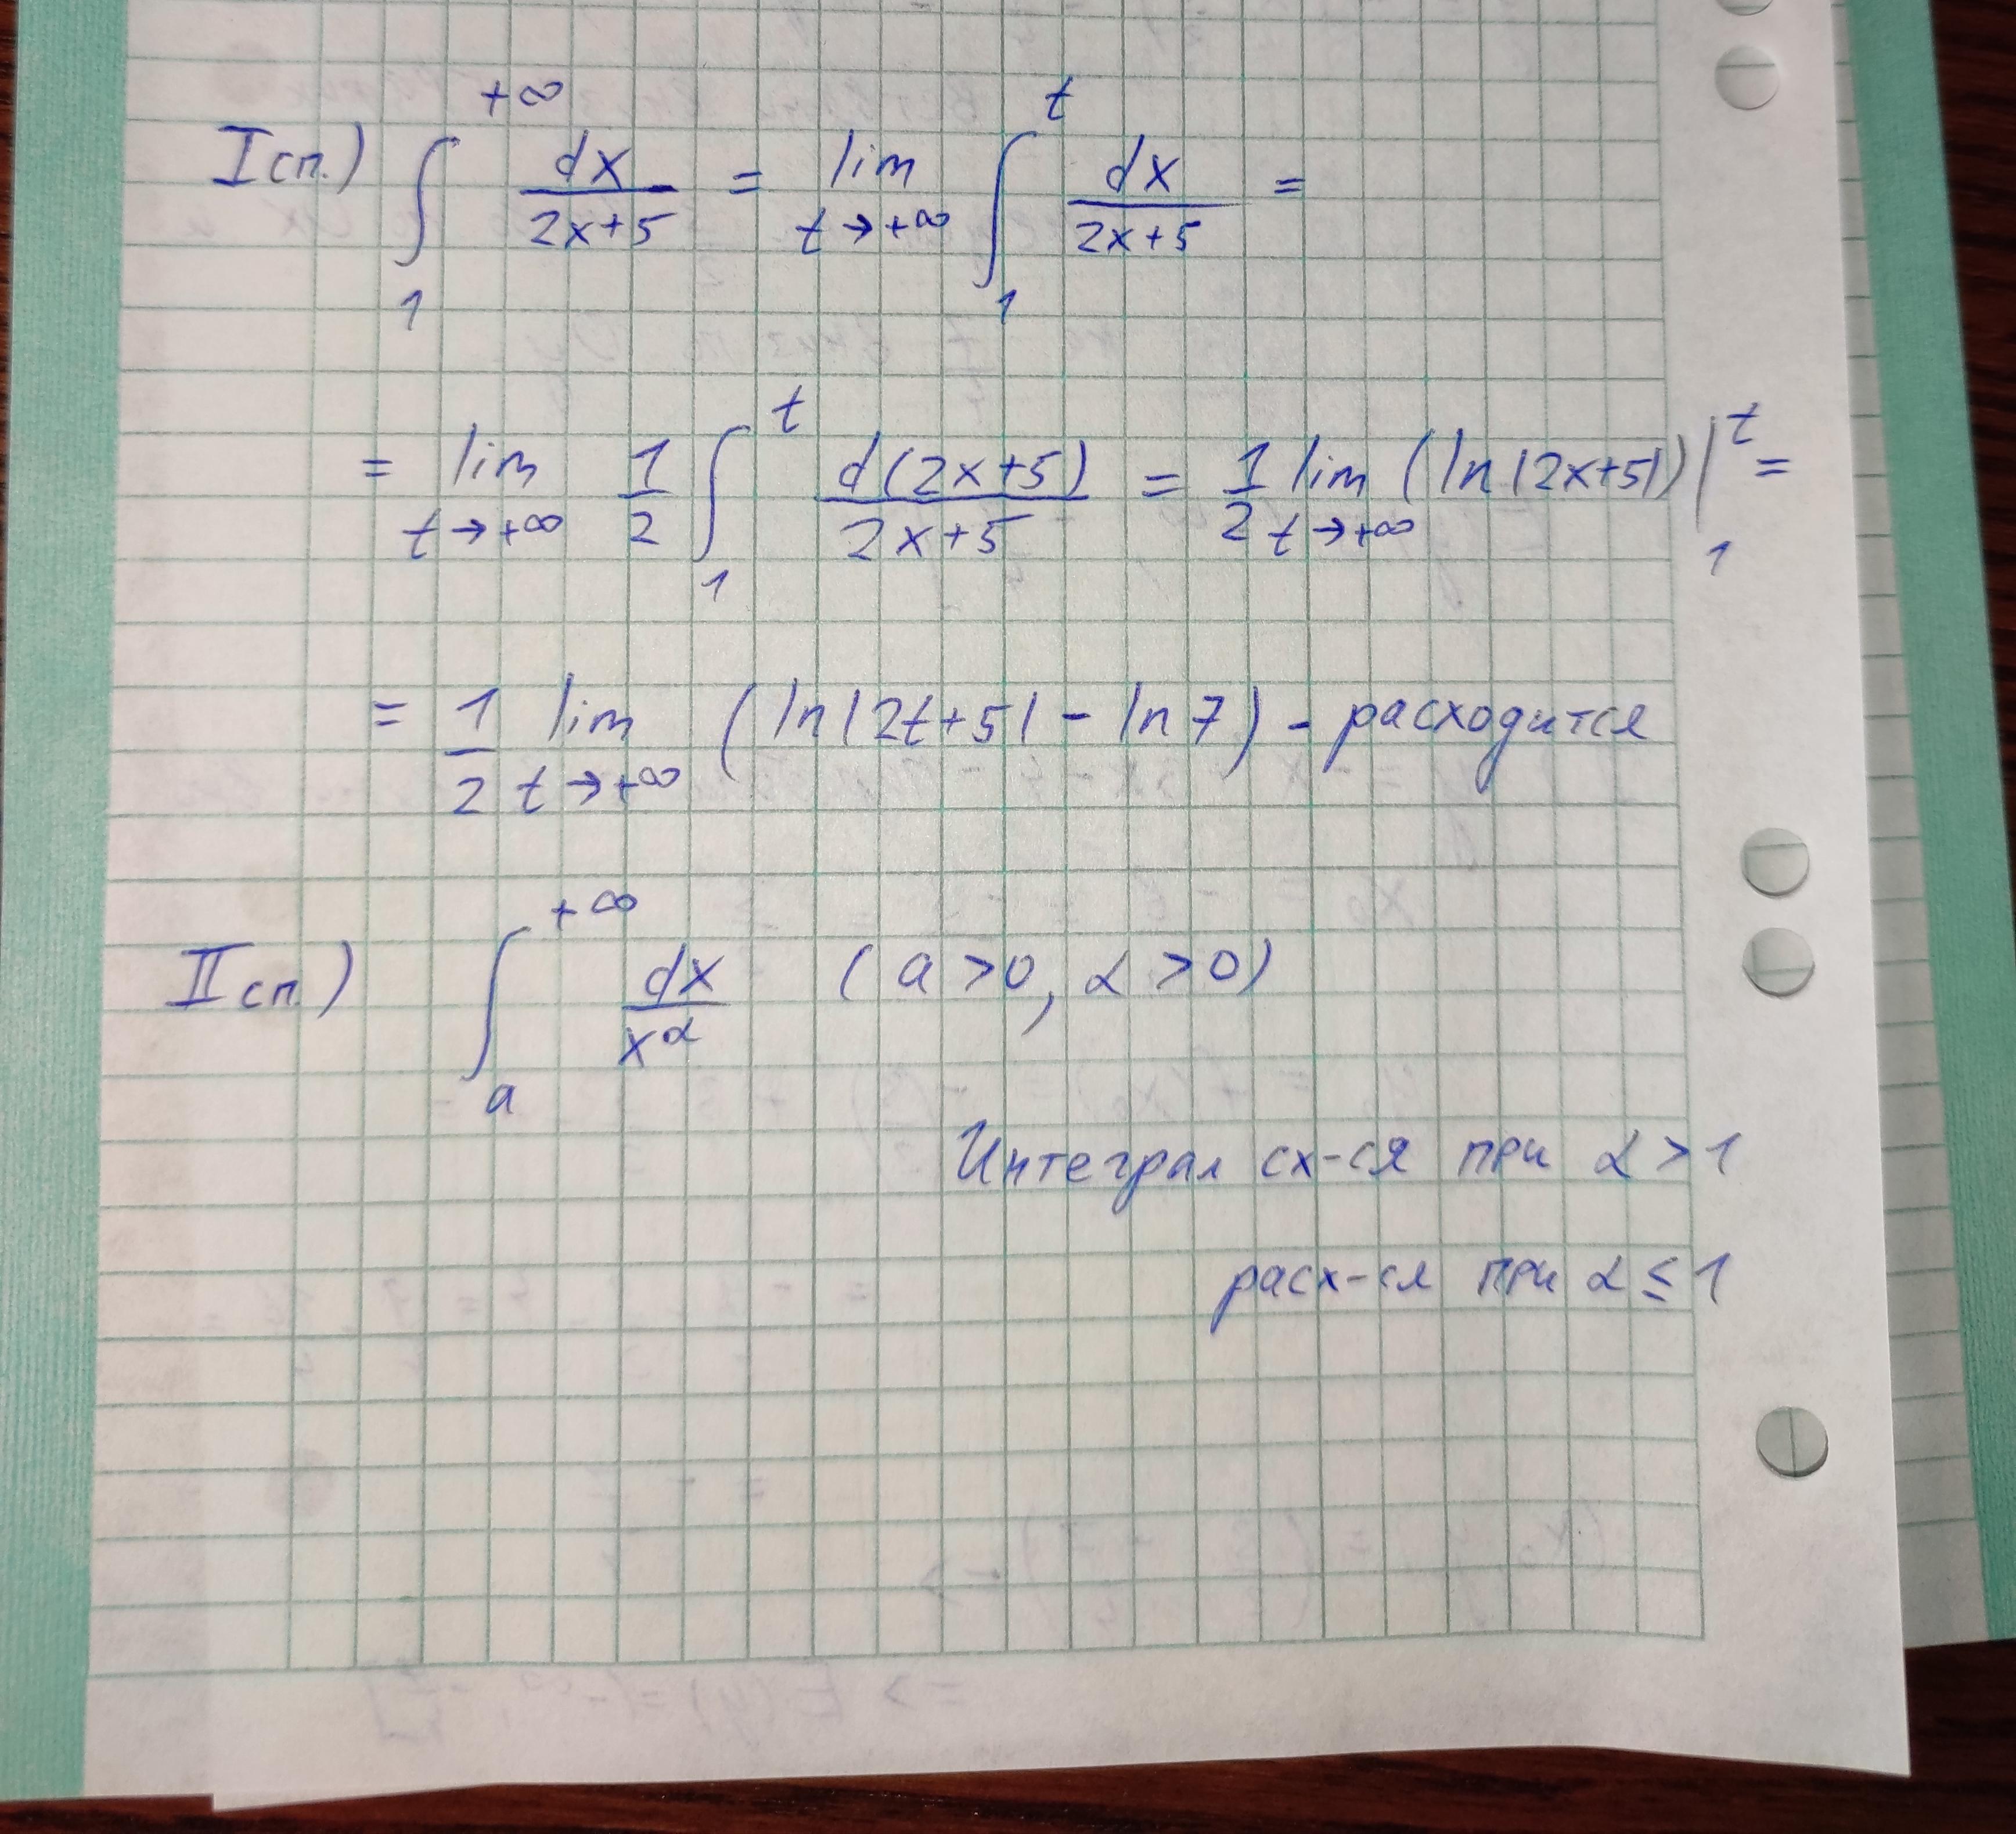 I сп.) ∫₁^{+∞} dx/(2x+5) = lim_{t→+∞} ∫₁^t dx/(2x+5) =
= lim_{t→+∞} 1/2 ∫₁^t d(2x+5)/(2x+5) = 1/2 lim_{t→+∞} (ln|2x+5|)|₁^t =
= 1/2 lim_{t→+∞} (ln|2t+5| - ln 7) - расходится
II сп.) ∫_a^{+∞} dx/x^α (a>0, α>0)
Интеграл сх-ся при α>1
расх-ся при α≤1